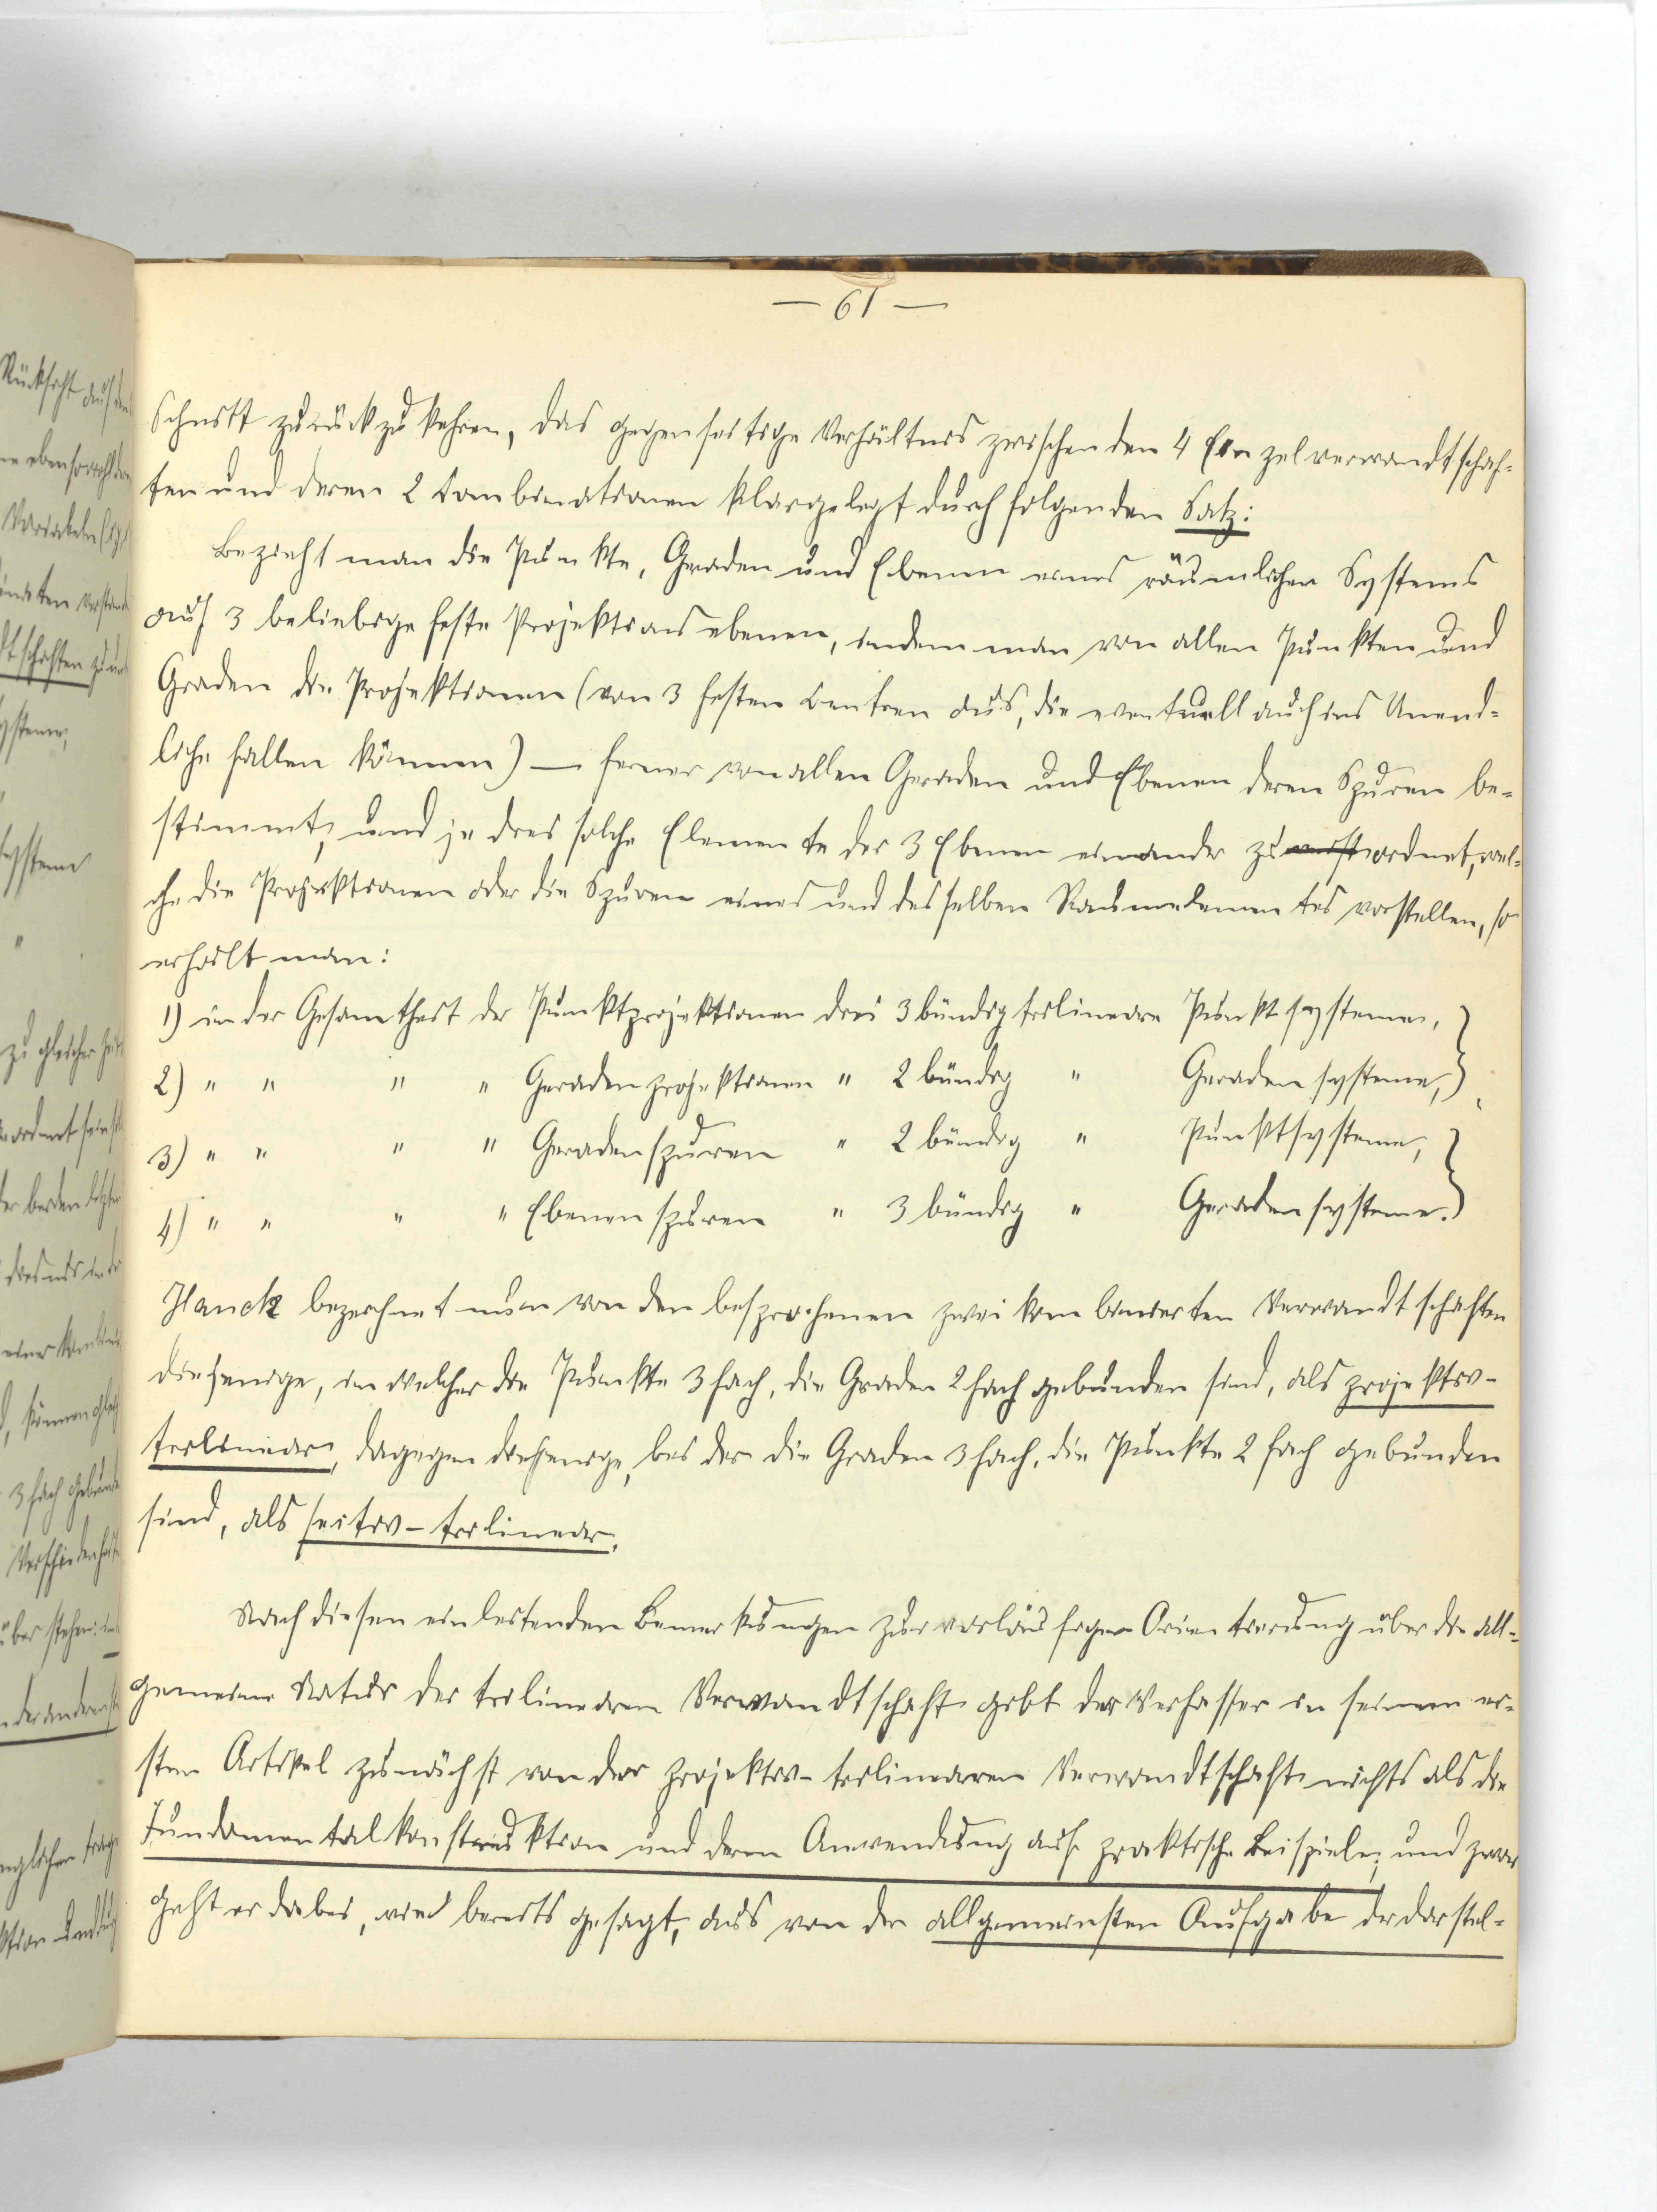 — 61 —
Schnitt zurückzukehren, das gegenseitige Verhältnis zwischen den 4 Einzelverwandtschaf-
ten und deren 2 Combinationen klargelegt durch folgenden Satz:
Bezieht man die Punkte, Geraden und Ebenen eines räumlichen Systems
auf 3 beliebige feste Projektionsebenen, indem man von allen Punkten und
Graden die Projektionen (von 3 festen Centren aus, die eventuell auch ins Unend-
liche fallen können) — ferner von allen Geraden und Ebenen deren Spuren be-
stimmt, und je drei solche Elemente der 3 Ebenen einander zuordnet, wel-
che die Projektionen oder die Spuren eines und desselben Raumelementes vorstellen, so
erhält man:
1) in der Gesamtheit der Punktprojektionen drei 3bündig trilineare Punktsysteme,
2) " " " " Geradenprojektionen " 2bündig " Geradensysteme,
3) " " " " Geradenspuren " 2bündig " Punktsysteme,
4) " " " " Ebenenspuren " 3bündig " Geradensysteme.
Hauck bezeichnet nun von den besprochenen zwei kombinierten Verwandtschaften
diejenige, in welcher die Punkte 3fach, die Graden 2fach gebunden sind, als projektiv-
trilinear, dagegen diejenige, bei der die Graden 3fach, die Punkte 2fach gebunden
sind, als sectiv-trilinear.
Nach diesen einleitenden Bemerkungen zur vorläufigen Orientierung über die all-
gemeine Natur der trilinearen Verwandtschaft gibt der Verfasser in seinem er-
sten Artikel zunächst von der projektiv-trilinearen Verwandtschaft nichts als die
Fundamentalkonstruktion und deren Anwendung auf praktische Beispiele; und zwar
geht er dabei, wie bereits gesagt, aus von der allgemeinsten Aufgabe der darstel-